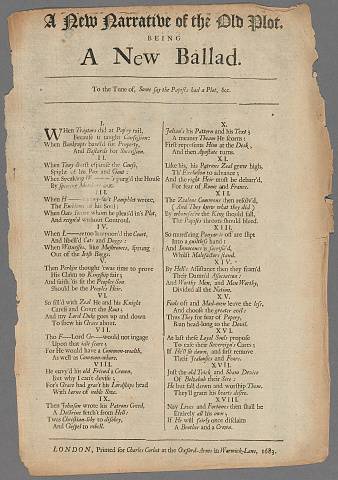 A New Narrative of the Old Plot.
BEING
A New Ballad.
To the Tune of, Some say the Papists had a Plot, &c.
I.
When Traytors did at Popry rail,
Because it taught Confession:
When Bankrupts bawl'd for Property,
And Bastards for Succession.
II.
When Tony durst espouse the Cause,
Spight of his Pox and Gout;
When Speaking purg'd the House
By
III.
When H Pamphlet wrote,
The of his
When Oats swore whom he pleas'd in's Plot,
And reign'd without Controul.
IV.
When L the Court,
And libell'd Cats and Doggs:
When Witnesses, like Mushromes, sprung
Out of the Irish Boggs.
V.
Then Perkin thought 'twas time to prove
His Claim to Kingship fair;
And faith 'tis fit the Peoples Son
Should be the Peoples Heir.
VI.
So fill'd with Zeal He and his Knight
Carest and Court the Rout;
And my Lord Duke goes up and down
To shew his Grace about.
VII.
Tho F Lord Gr would not ingage
Upon that score;
For He would have a Common-wealth,
As well as Common-whore.
VIII.
He envy'd his old Friend a Crown,
But why I can't devise;
For's Grace had grac't his Lordships head
With horns of noble Size.
IX.
Then Johnson wrote his Patrons Creed,
A Doctrine fetch't from Hell:
'Twas Christian-like to disobey,
And Gospel to rebell.
X.
Julian's his Pattern and his Text;
A meaner Theam He scorns:
First represents Him at the Desk,
And then Apostate turns.
XI.
Like his, his Patrons Zeal grew high,
Th' Exclusion to advance;
And the right Heir must be debarr'd,
For fear of Rome and France.
XII.
The Zealous Commons then resolv'd,
(And They knew what they did)
By whomsoe're the King should fall,
The Papists throats should bleed.
XIII.
So murd'ring off are slipt
Into a guiltless hand:
And Innocence is sacrific'd,
Whilst Malefactors stand.
XIV.
By Hell's Assistance then they fram'd
Their Damn'd Association;
And Worthy Men, and Men Worthy,
Divided all the Nation.
XV.
Fools oft and Mad-men leave the less,
And choose the greater evil:
Thus They for fear of Popery,
Run head-long to the Devil.
XVI.
At last these Loyal Souls propose
To ease their Sovereign's Cares;
If He'll sit down, and first remove
Their Jealousies and Fears.
XVII.
Just the old Trick and Sham Device
Of Belzebub their Sire;
He but fall down and worship Them,
They'll grant his hearts desire.
XVIII.
Nay Lives and Fortunes then shall be
Entirely all his own;
If He will fairly once disclaim
A Brother and a Crown.
LONDON, Printed for Charles Corbet at the Oxford-Arms in Warwick-Lane, 1683.